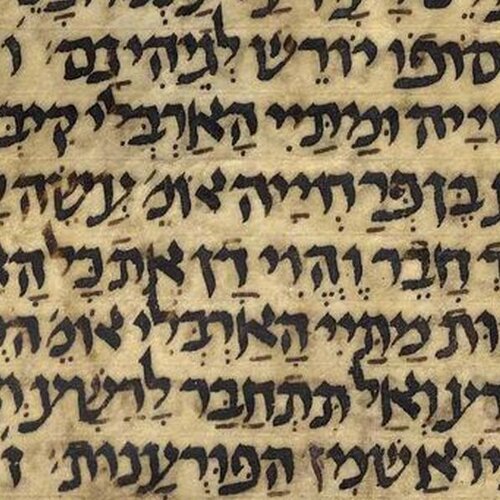 סופו יורש לגיהינם
ומתיי הארבלי
בן פרחייה אומ' עשה
חבר והוי דן את כל
מתיי הארבלי אומ'
רע ואל תתחבר לרשע
הפורענות